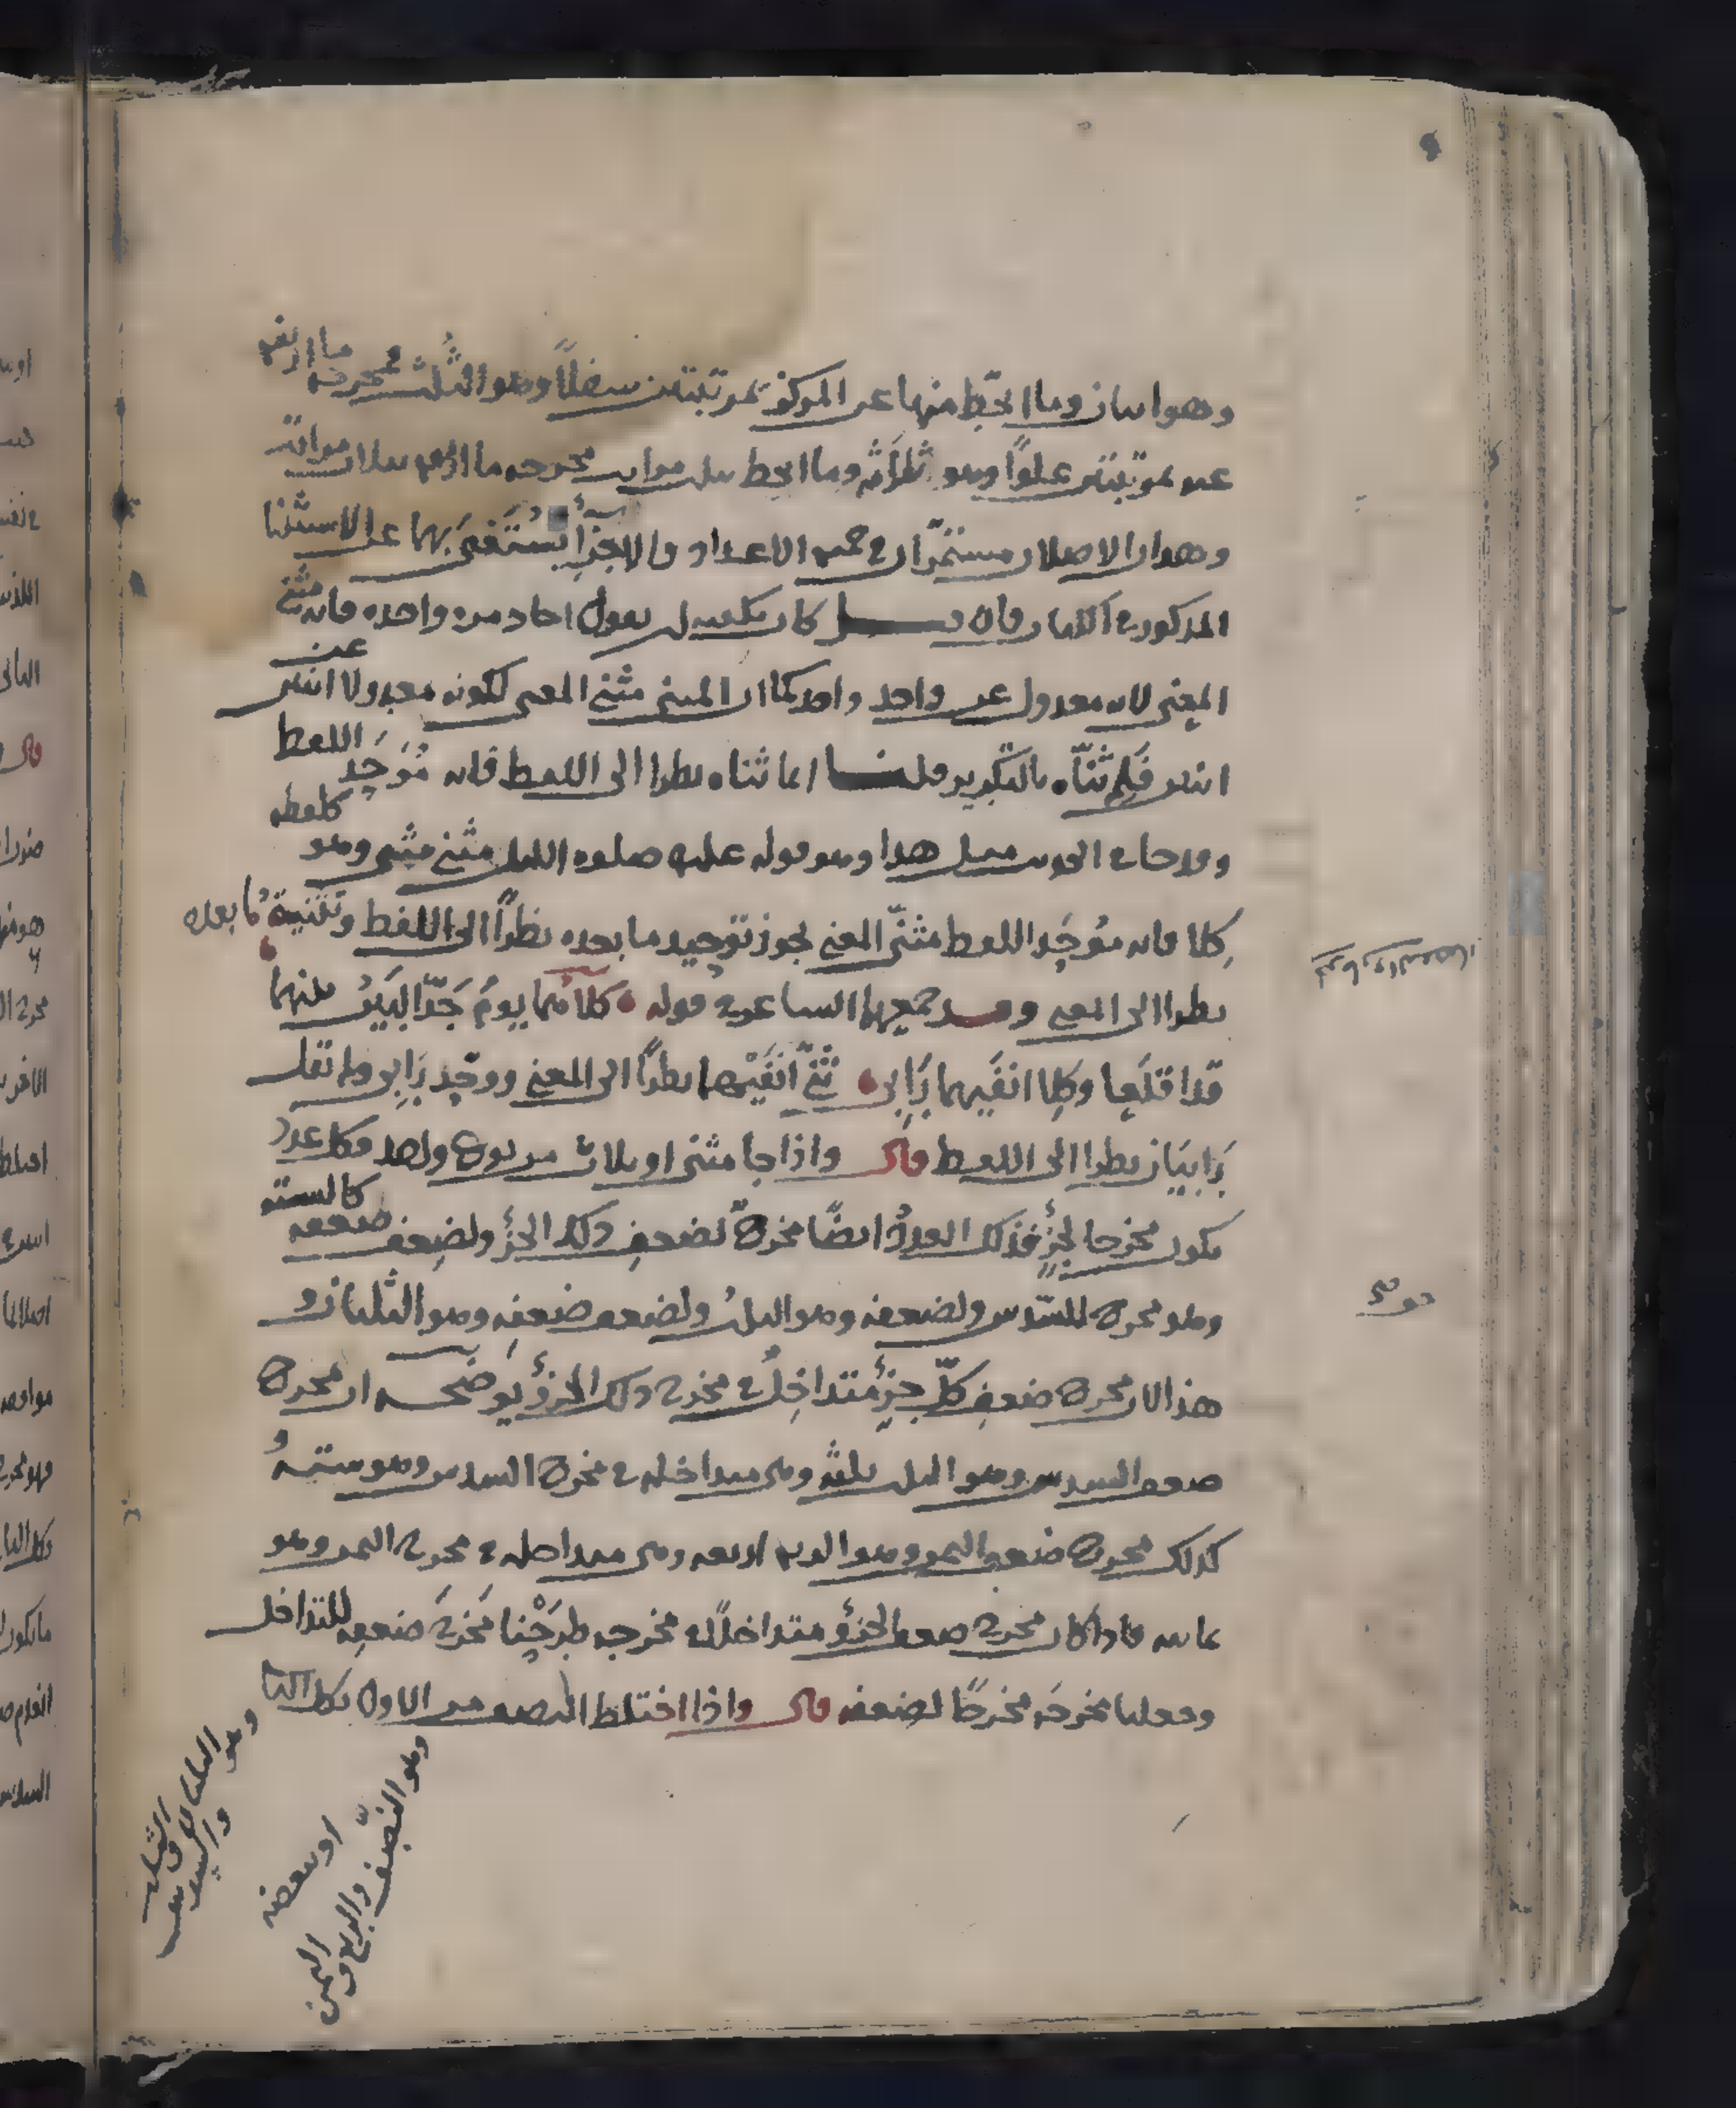 وهو اثنان وما انحط منها عن المركز بمرتبتين سفلاً وهو الثلث فمخرجه ما ارتفع
عنه بمرتبتين علوًا وهو ثلاثة وما انحط بثلاث مراتب مخرجه ما ارتفع بثلاث مراتب
وهذان الاصلان مستمرّان في جميع الاعداد والاجزأ يُستَغنى بهما عن الاستثنا
المذكور في الكتاب فان قيل كان يكفيه ان يقول احاد مرة واحدة فانه مثنى
المعنى لانه معدول عن واحد واحد كما ان المثنى مثنى المعنى لكونه معدولا عن اثنين
اثنين فَلِمَ ثنّاه بالتكرير قلنا انما ثناه نظرا الى اللفظ فانه مُوَحّد اللفظ
وقد جاء في الحديث مثل هذا وهو قوله عليه صلوة الليل مثنى مثنى وهو كلفظه
كِلا فانه مُوَحّد اللفظ مثنّى المعنى يجوز توحيد ما بعده نظرًا الى اللفظ وتثنية ما بعده
نظرا الى المعنى وقد جمعهما الشاعر في قوله كلاهما يوم جَدّ البَيْنُ بينهما
قد اقلعا وكِلا انفَيهما رَابى ثنّى انفَيْهما نظرًا الى المعنى ووحّد رَابى ولم يقل
رَابيَان نظرا الى اللفظ قال واذا جا مثنى او ثلاث من نوع واحد فكل عدد
يكون مخرجا لجزءٍ فذلك العددُ ايضًا مخرجٌ لضعفِ ذلك الجزؤ ولضِعفِ ضعفه كالستة
وهو مخرج للسّدس ولضعفه وهو الثلثُ ولضعف ضعفِه وهو الثلثان و
هذا لان مخرج ضعفِ كلّ جزءٍ متداخِلٌ في مخرج ذلك الجزؤ يوضحه ان مخرج
ضعف السدس وهو الثلث ثلثةٌ وهي متداخلة في مخرج السدس وهو ستةُ
كذلك مخرج ضعف الثمن وهو الربع اربعة وهي متداخلة في مخرج الثمن وهو
ثمانية فاذا كان مخرج ضعف الجزؤ متداخلًا في مخرجه طرَحْنا مَخرَجَ ضعفِه للتداخل
وجعلنا مخرجَه مخرجًا لضعفه قال واذا اختلط النصف من الاول بكل الثا
وهو الثلثان والثلث والسدس
او ببعضه
وهو النّصف والربع والثمن